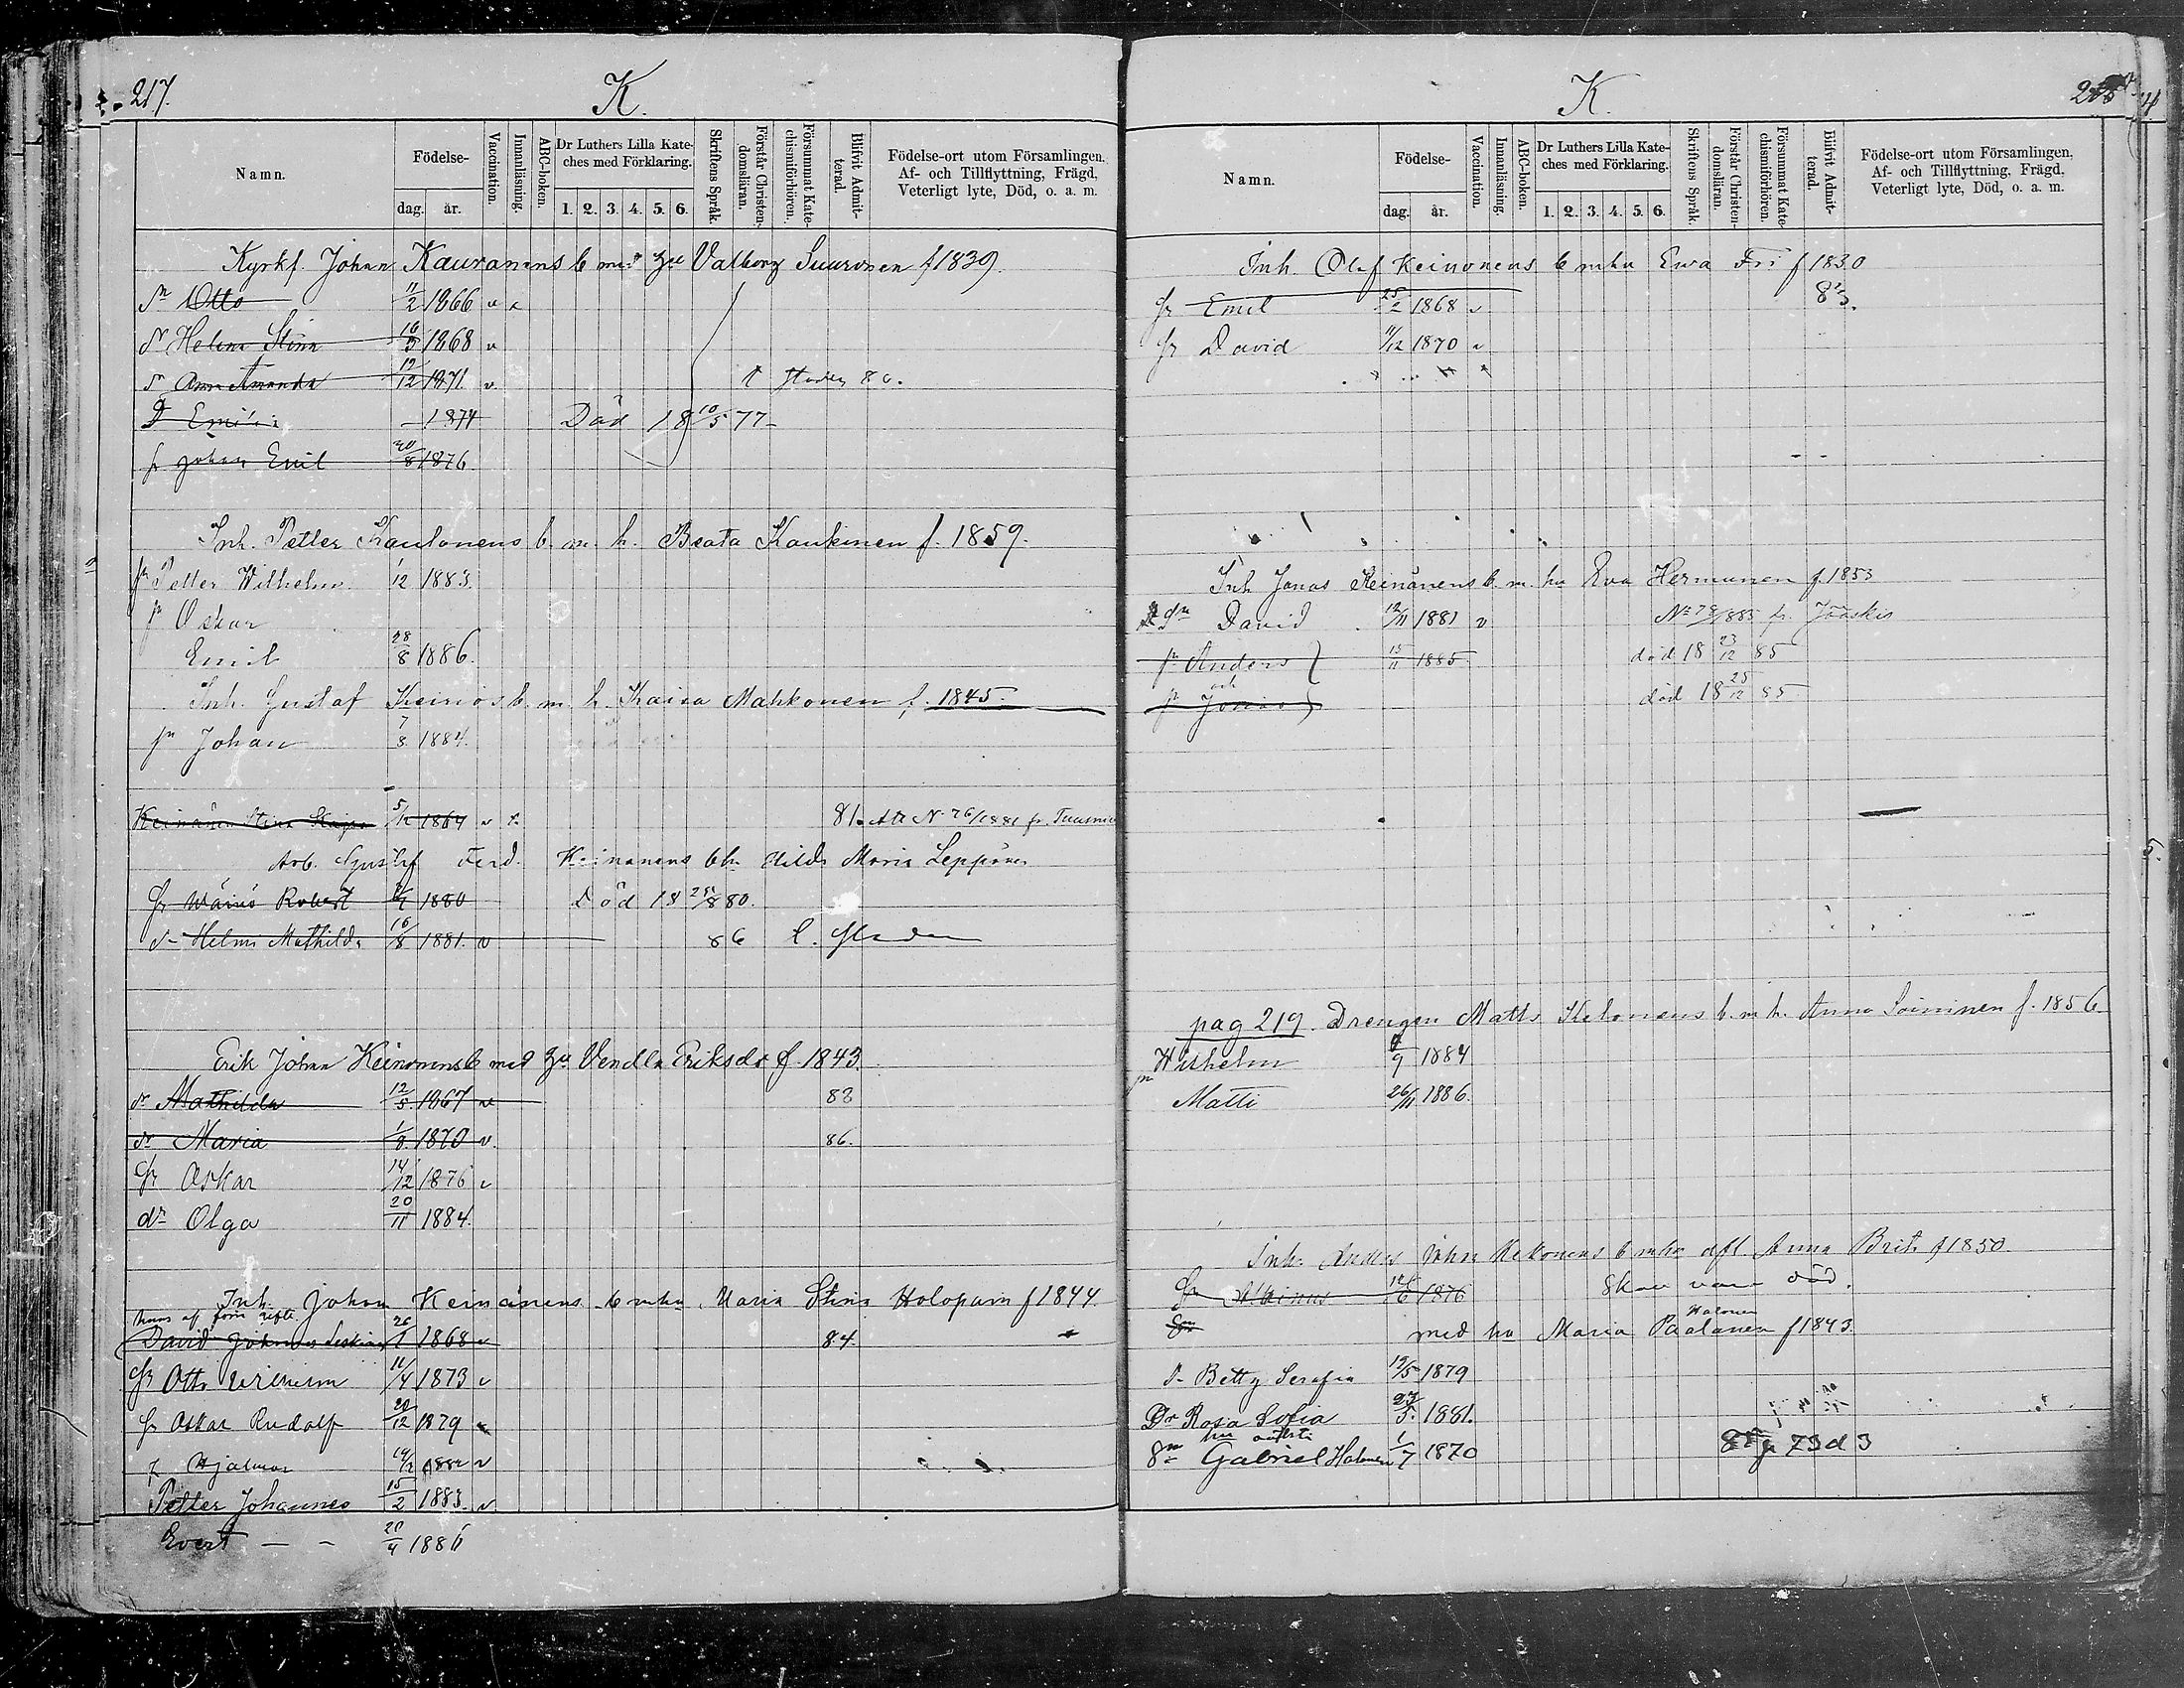 217.
K.
Namn.
Födelse-
dag. år.
Vaccination.
Innanläsning.
ABC-boken.
Dr Luthers Lilla Kate-
ches med Förklaring.
1. 2. 3. 4. 5. 6.
Skriftens Språk.
Förstår Christen-
domsläran.
Försummat Kate-
chismiförhören.
Blifvit Admit-
terad.
Födelse-ort utom Församlingen.
Af- och Tillflyttning, Frägd,
Veterligt lyte, Död, o. a. m.
Kyrkf. Johan Kauranens b med hu Valborg Suuronen f 1839.
Sn Otto 11/2 1866 v
dr Helena Stina 16/3 1868 v
dr Anna Amanda 19/12 1871 v 80.
D 1874 Död 18 10/5 77
sn Johan Emil 30/8 1876
Inh. Petter Kaulanens b. m. h. Beata Kaukinen f. 1859.
sn Petter Wilhelm 1/12 1883.
sn Oskar
Emil 28/8 1886.
Inh. Gustaf Keinos b. m. h. Kaisa Mahkonen f. 1845.
sn Johan 7/8 1884.
Keinänen Stina Kajsa 5/12 1864 v 81. Att N 76/1881 fr.
Arb. Gustaf Ferd. Keinanens b hu Hilda Maria Leppänen
Robert 1880 Död 18 80.
dr Helmi Mathilda 16/8 1881. v 86
Erik Johan Keinonens b med hu Vendla Eriksdr f. 1843.
dr Mathilda 12/5 1867 v 83
dr Maria 1/8 1870 v. 86.
Sn Oskar 14/12 1876 v
dr Olga 20/11 1884.
Inh. Johan Keinänens b m hu Maria Stina f 1844.
hans af förra
David Johannes 26/1 1868 v 84.
Sn Otto 11/4 1873 v
Sn Oskar Rudolf 20/12 1879
Hjalmar v
Petter Johannes 15/2 1883. v
Evert — – 1886
K.
Namn.
Födelse-
dag. år.
Vaccination.
Innanläsning.
ABC-boken.
Dr Luthers Lilla Kate-
ches med Förklaring.
1. 2. 3. 4. 5. 6.
Skriftens Språk.
Förstår Christen-
domsläran.
Försummat Kate-
chismiförhören.
Blifvit Admit-
terad.
Födelse-ort utom Församlingen,
Af- och Tillflyttning, Frägd,
Veterligt lyte, Död, o. a. m.
Inh. Olof Keinonens b m hu Ewa Fri f 1830
Sn Emil 25/2 1868 v 83.
Sn David 11/12 1870 v
Inh Jonas Keinänens b. m. hu Eva Hermunen f. 1853
Sn David 12/11 1881 v No 78/1885 fr. Jääskis
sn Anders 15/11 1885 död 18 23/12 85
och
sn Jonas död 18 25/12 85
pag 219. Drengen Matts Kelonens b. m h. Anna Soininen f. 1856.
Wilhelm 1884
sn Matti 26/11 1886.
Inh. Anders Johan Kekonens b m hu afl. Anna Brita f 1850.
Sn Albinus 1876 Skall vara död.
Halonen
Sn med hu Maria Paalanen f 1843.
dr Betty Serafia 19/5 1879
Dr Rosa Sofia 23/5. 1881.
Sn Gabriel Halonen 1/7 1870 73 d 3
5.